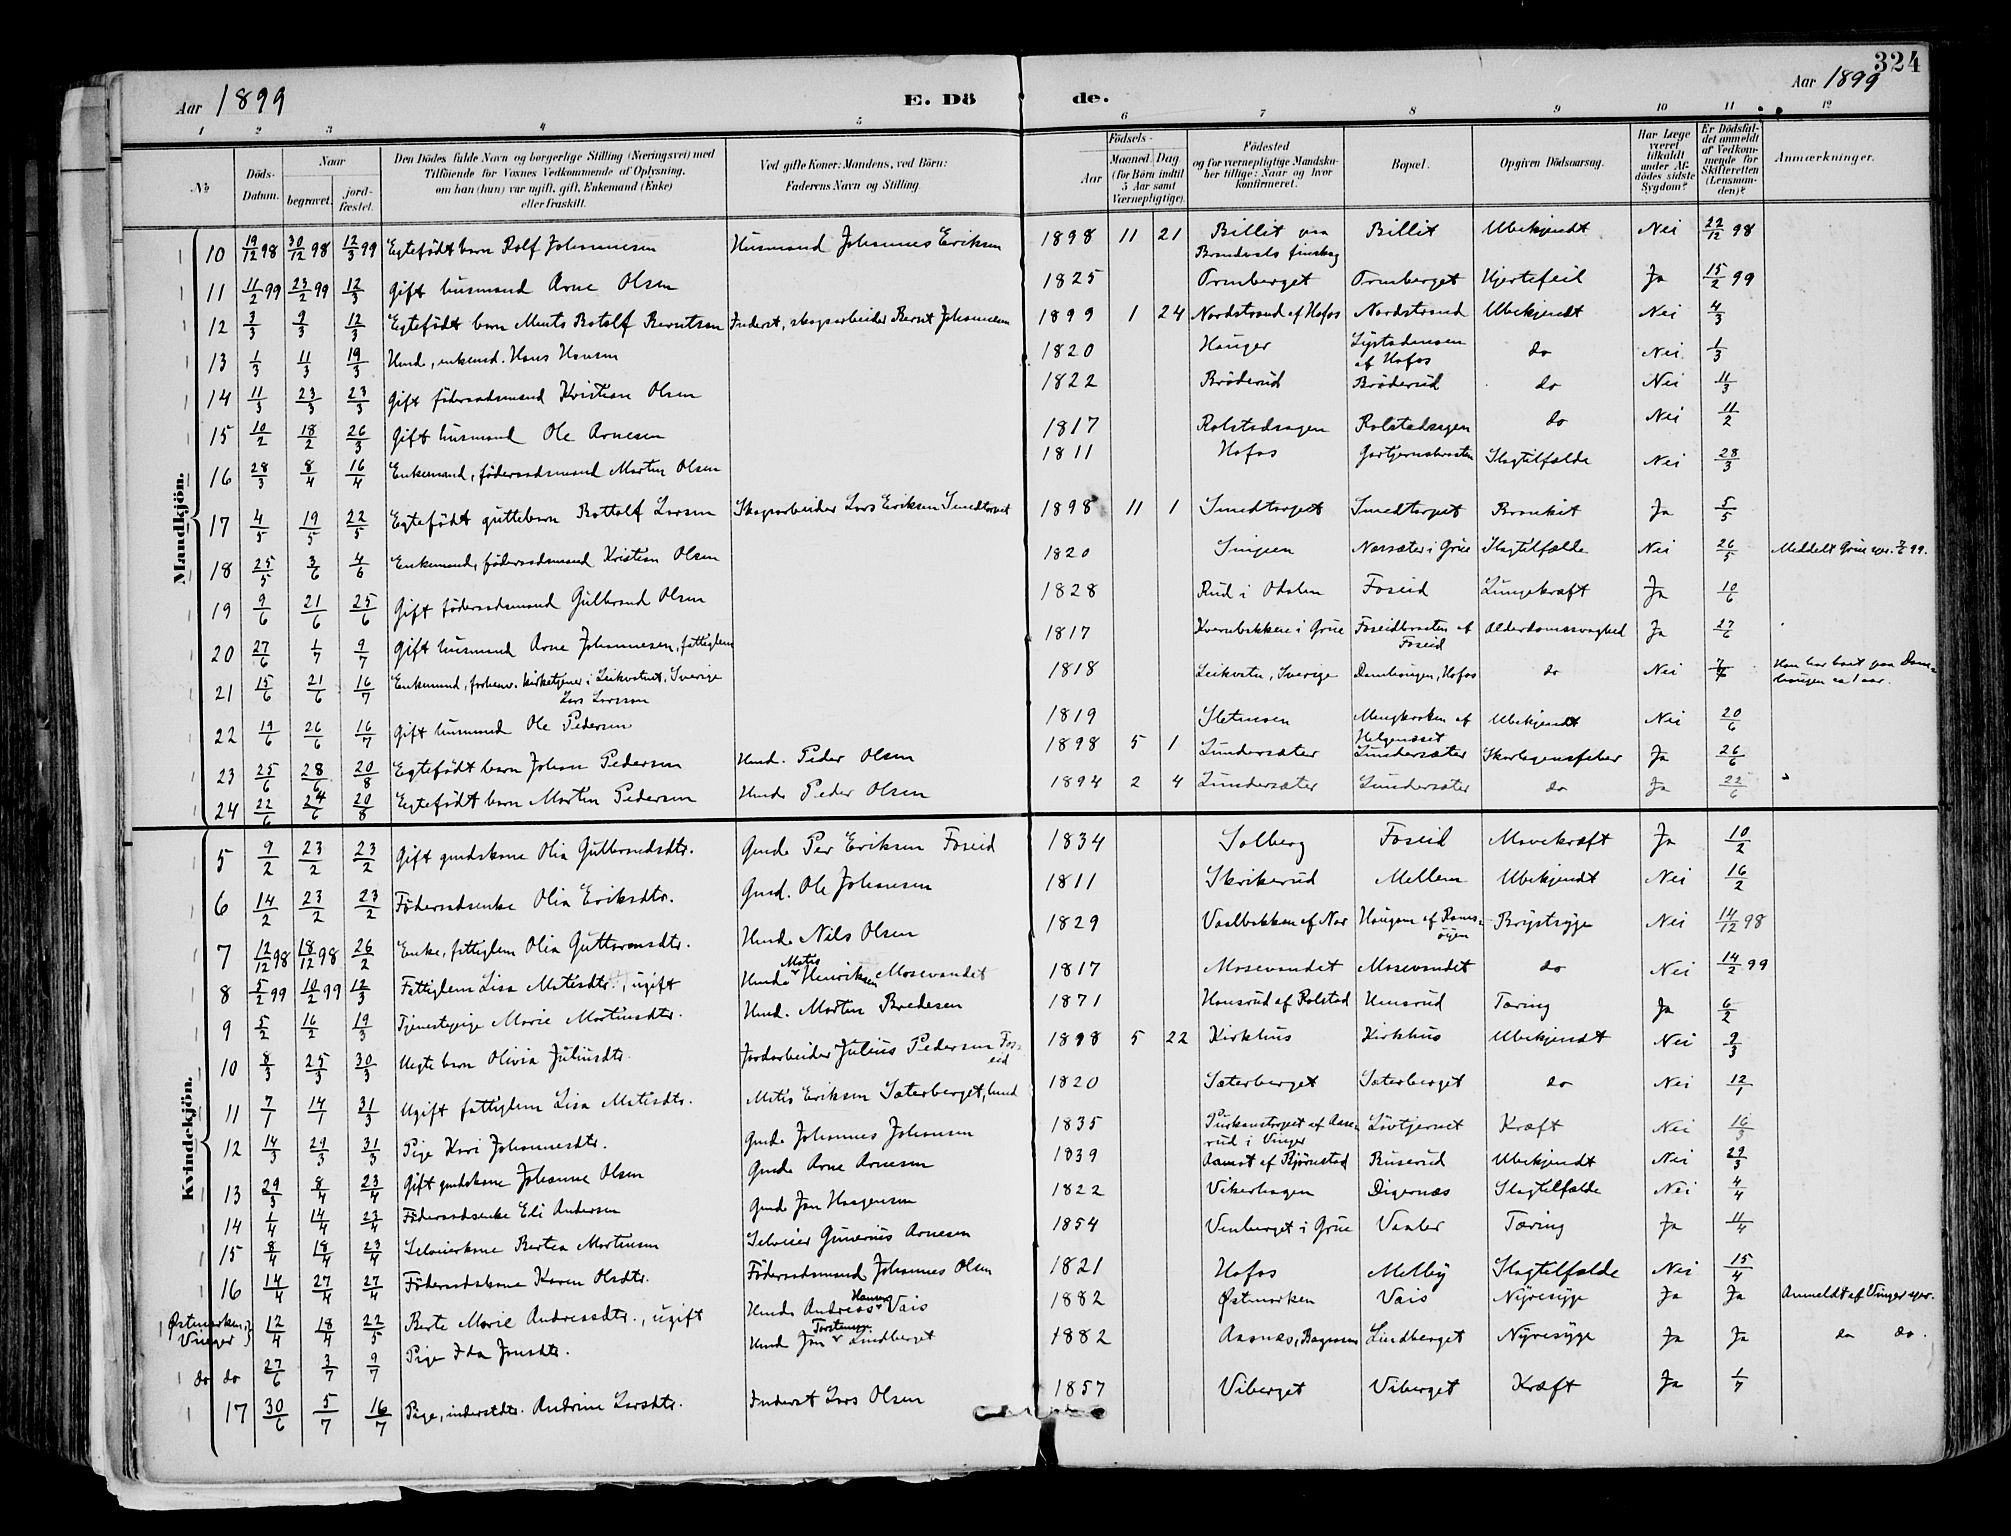 324
Aar 1899
E. Döde.
Aar 1899
1 2 3 4 5 6 7 8 9 10 11 12
No
Döds-Datum.
Naar
begravet.
jord-fæstet.
Den Dödes fulde Navn og borgerlige Stilling (Næringsvei) med
Tilföiende for Voxnes Vedkommende af Oplysning,
om han (hun) var ugift, gift, Enkemand (Enke)
eller fraskilt.
Ved gifte Koner: Mandens, ved Börn:
Faderens Navn og Stilling.
Födsels-
Aar
Maaned. Dag
(for Börn indtil
5 Aar samt
Værnepligtige).
Födested
og for værnepligtige Mandskaber tillige: Naar og hvor
konfirmeret.
Bopæl.
Opgiven Dödsaarsag.
Har Læge
været
tilkaldt
under Af-
dödes sidste
Sygdom?
Er Dödsfal-
det anmeldt
af Vedkom-
mende for
Skifteretten
(Lensman-
den)?
Anmærkninger.
Mandkjön.
10 19/12 98 30/12 98 12/3 99 Egtefödt barn Rolf Johannesen Husmand Johannes Eriksen 1898 11 21 Billit paa Brandvals finskog Billit Ubekjendt Nei 22/12 98
11 11/2 99 23/2 99 12/3 Gift husmand Arne Olsen 1825 Ormberget Ormberget Hjertefeil Ja 15/2 99
12 3/3 9/3 12/3 Egtefödt barn Ments Botolf Berntsen Inderst, skogsarbeider Bernt Johannesen 1899 1 24 Nordstrand af Hofos Nordstrand Ubekjendt Nei 4/3
13 1/3 11/3 19/3 Hmd, enkemd. Hans Hansen 1820 Hauger af Hofos do Nei 1/3
14 11/3 23/3 23/3 Gift föderaadsmand Kristian Olsen 1822 Bröderud Bröderud do Nei 11/3
15 10/2 18/2 26/3 Gift husmand Ole Arnesen 1817 Rolstadsagen Rolstadsagen do Nei 11/2
16 28/3 8/4 16/4 Enkemand, föderaadsmand Martin Olsen 1811 Hofos Slagtilfælde Nei 28/3
17 4/5 19/5 22/5 Egtefödt guttebarn Bottolf Larsen Skogsarbeider Lars Eriksen Smedtorpet 1898 11 1 Smedtorpet Smedtorpet Bronkit Ja 5/5
18 25/5 3/6 4/6 Enkemand, föderaadsmand Kristian Olsen 1820 Norsæter i Grue Slagtilfælde Nei 26/5 Meddelt Grue spr. 99.
19 9/6 21/6 25/6 Gift föderaadsmand Gulbrand Olsen 1828 Rud i Odalen Foseid Lungekræft Ja 10/6
20 27/6 1/7 9/7 Gift husmand Arne Johannesen, fattiglem 1817 Kvernbakken i Grue Foseidbraaten af Foseid Alderdomssvaghed Ja 27/6
21 15/6 21/6 16/7 Enkemand, forhenv. kirketjener i Leikvatnet, Sverige Lars Larsson 1818 Leikvatn, Sverige Damhaugen, Hofos do Nei Han har boet paa Dam-haugen ca 1 aar.
22 19/6 26/6 16/7 Gift husmand Ole Pedersen 1819 Sletmoen Mengkroken af Helgenæset Ubekjendt Nei 20/6
23 25/6 28/6 20/8 Egtefödt barn Johan Pedersen Hmd. Peder Olsen 1898 5 1 Lundersæter Lundersæter Skarlagensfeber Ja 26/6
24 22/6 24/6 20/8 Egtefödt barn Martin Pedersen Hmd. Peder Olsen 1894 2 4 Lundersæter Lundersæter do Ja 22/6
Kvindekjön.
5 9/2 23/2 23/2 Gift gmdskone Olia Gulbrandsdtr. Gmd. Per Eriksen Foseid 1834 Solberg Foseid Mavekræft Ja 10/2
6 14/2 23/2 23/2 Föderaadsenke Olia Eriksdtr. Gmd. Ole Johansen 1811 Skrikerud Mellem Ubekjendt Nei 16/2
7 12/12 98 18/12 98 26/2 Enke, fattiglem Olia Guttormsdtr. Hmd. Nils Olsen 1829 Vaalbakken af Nor Haugen af Brystsyge Nei 14/12 98
8 5/2 99 10/2 99 12/3 Fattiglem Lisa Matisdtr., ugift Hmd. Matis Henriksen Mosevandet 1817 Mosevandet Mosevandet do Nei 14/2 99
9 5/2 16/2 19/3 Tjenestepige Marie Martinsdtr. Hmd. Martin Bredesen 1871 Hansrud af Rolstad Hansrud Tæring Ja 6/2
10 8/3 25/3 30/3 Uegte barn Olivia Juliusdtr. Jordarbeider Julius Pedersen Foseid 1898 5 22 Kirkhus Kirkhus Ubekjendt Nei 9/3
11 7/1 14/1 31/3 Ugift fattiglem Lisa Matisdtr. Matis Eriksen Sæterberget, hmd 1820 Sæterberget Sæterberget do Nei 12/1
12 14/3 29/3 31/3 Pige Kari Johannesdtr. Gmd. Johannes Johansen 1835 rud i Vinger Lövtjernet Kræft Nei 16/3
13 29/3 8/4 23/4 Gift gmdskone Johanne Olsen Gmd. Arne Arnesen 1839 Aamot af Bjørnstad Buserud Ubekjendt Nei 29/3
14 1/4 14/4 23/4 Föderaadsenke Eli Andersen Gmd. Jon Haagensen 1822 Vikerhagen Digernæs Slagtilfælde Nei 4/4
15 8/4 18/4 23/4 Selveierkone Bertea Martinsen Selveier Gunerius Arnesen 1854 Venberget i Grue Vaaler Tæring Ja 11/4
16 14/4 27/4 27/4 Föderaadskone Karen Olsdtr. Föderaadsmand Johannes Olsen 1821 Hofos Melby Slagtilfælde Nei 15/4
Østmarken i Vinger 12/4 18/4 22/5 Berte Marie Andreasdtr., ugift Hmd. Andreas Hansen Vais 1882 Østmarken Vais Nyresyge Ja Ja Anmeldt af Vinger spr.
do do 27/6 3/7 9/7 Pige Ida Jonsdtr. Hmd Jon Torstensen Lindberget 1882 Aasnæs, Lindberget Nyresyge Ja Ja do do.
17 30/6 5/7 16/7 Pige, inderstdtr. Andrine Larsdtr. Inderst Lars Olsen 1857 Viberget Viberget Kræft Ja 1/7